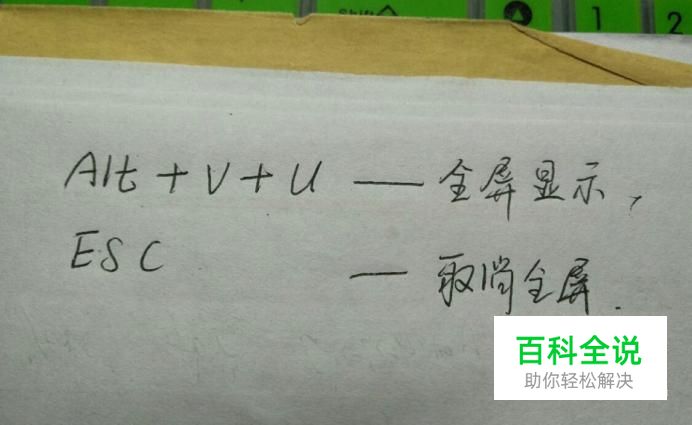 Shift
1
2
Alt+V+U — 全屏显示,
ESC — 取消全屏.
百科全说
助你轻松解决